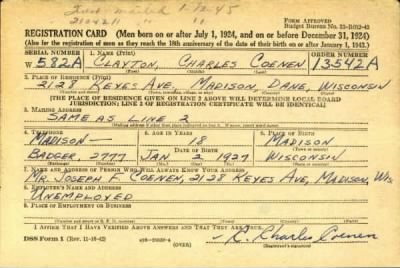 Card mailed 1-12-45
FORM APPROVED
Budget Bureau No.
REGISTRATION CARD (Men born on or after July 1, 1924, and on or before December 31, 1924)
(Also for the registration of men as they reach the 18th anniversary of the date of their birth on or after January 1, 1943.)
SERIAL NUMBER 1. NAME (Print) ORDER NUMBER
W 582A CLAYTON, CHARLES COENEN 13542A
(First) (Middle) (Last)
2. PLACE OF RESIDENCE (Print)
2128 KEYES AVE, MADISON, DANE, WISCONSIN
[THE PLACE OF RESIDENCE GIVEN ON LINE 2 ABOVE WILL DETERMINE LOCAL BOARD
JURISDICTION; LINE 2 OF REGISTRATION CERTIFICATE WILL BE IDENTICAL]
3. MAILING ADDRESS
SAME AS LINE 2
4. TELEPHONE 5. AGE IN YEARS 6. PLACE OF BIRTH
MADISON 18 MADISON
DATE OF BIRTH
BADGER 2777 JAN 2 1927 WISCONSIN
(Exchange) (Number) (Mo.) (Day) (Yr.) (State or country)
7. NAME AND ADDRESS OF PERSON WHO WILL ALWAYS KNOW YOUR ADDRESS
MR. JOSEPH F. COENEN, 2128 KEYES AVE, MADISON, WIS
8. EMPLOYER'S NAME AND ADDRESS
UNEMPLOYED
9. PLACE OF EMPLOYMENT OR BUSINESS
I AFFIRM THAT I HAVE VERIFIED ABOVE ANSWERS AND THAT THEY ARE TRUE.
DSS Form 1 (Rev. 11-16-42) (OVER) C. Charles Coenen
(Registrant's signature)